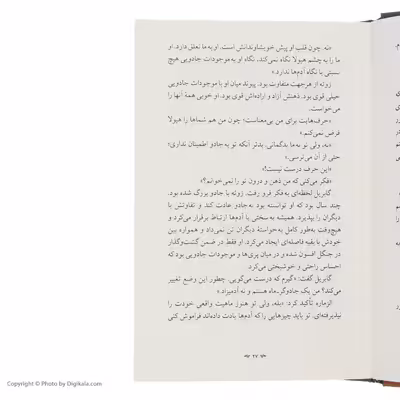 «نه، چون قلب او پیش خویشاوندانش است. او به ما تعلق دارد. او
ما را به چشم هیولا نگاه نمی‌کند، نگاه او به موجودات جادویی هیچ
نسبتی با نگاه آدم‌ها ندارد.»
زوئه از هر جهت متفاوت بود. پیوند میان او با موجودات جادویی
خیلی قوی بود. ذهنش آزاد و اراده‌اش قوی بود. او خوبی همهٔ آنها را
می‌خواست.
«حرف‌هایت برای من بی‌معناست؛ چون من هم شماها را هیولا
فرض نمی‌کنم.»
«نه، ولی تو به ما بدگمانی. بدتر آنکه تو به جادو اطمینان نداری؛
حتی از آن می‌ترسی.»
«این حرف درست نیست!»
«فکر می‌کنی که من ذهن و درون تو را نمی‌خوانم؟»
گابریل لحظه‌ای به فکر فرو رفت. زوئه با جادو بزرگ شده بود.
چند سال بود که او توانسته بود به جادو عادت کند و تفاوتش با
دیگران را بپذیرد. همیشه به سختی با آدم‌ها ارتباط برقرار می‌کرد و
هیچ‌وقت به‌طور کامل به خواستهٔ دیگران تن نمی‌داد و همواره بین
خودش با بقیه فاصله‌ای ایجاد می‌کرد. او فقط در ضمن گشت‌وگذار
در جنگل افسون شده و در میان پری‌ها و موجودات جادویی بود که
احساس راحتی و خوشبختی می‌کرد.
گابریل گفت: «گیرم که درست می‌گویی. چطور این وضع تغییر
می‌کند؟ من یک جادوگر-ماه هستم و نه آدمیزاد.»
الزماره تأکید کرد: «بله، ولی تو هنوز ماهیت واقعی خودت را
نپذیرفته‌ای. تو باید چیزهایی را که آدم‌ها یادت داده‌اند فراموش کنی
۲۷
Copyright © Photo by Digikala.com